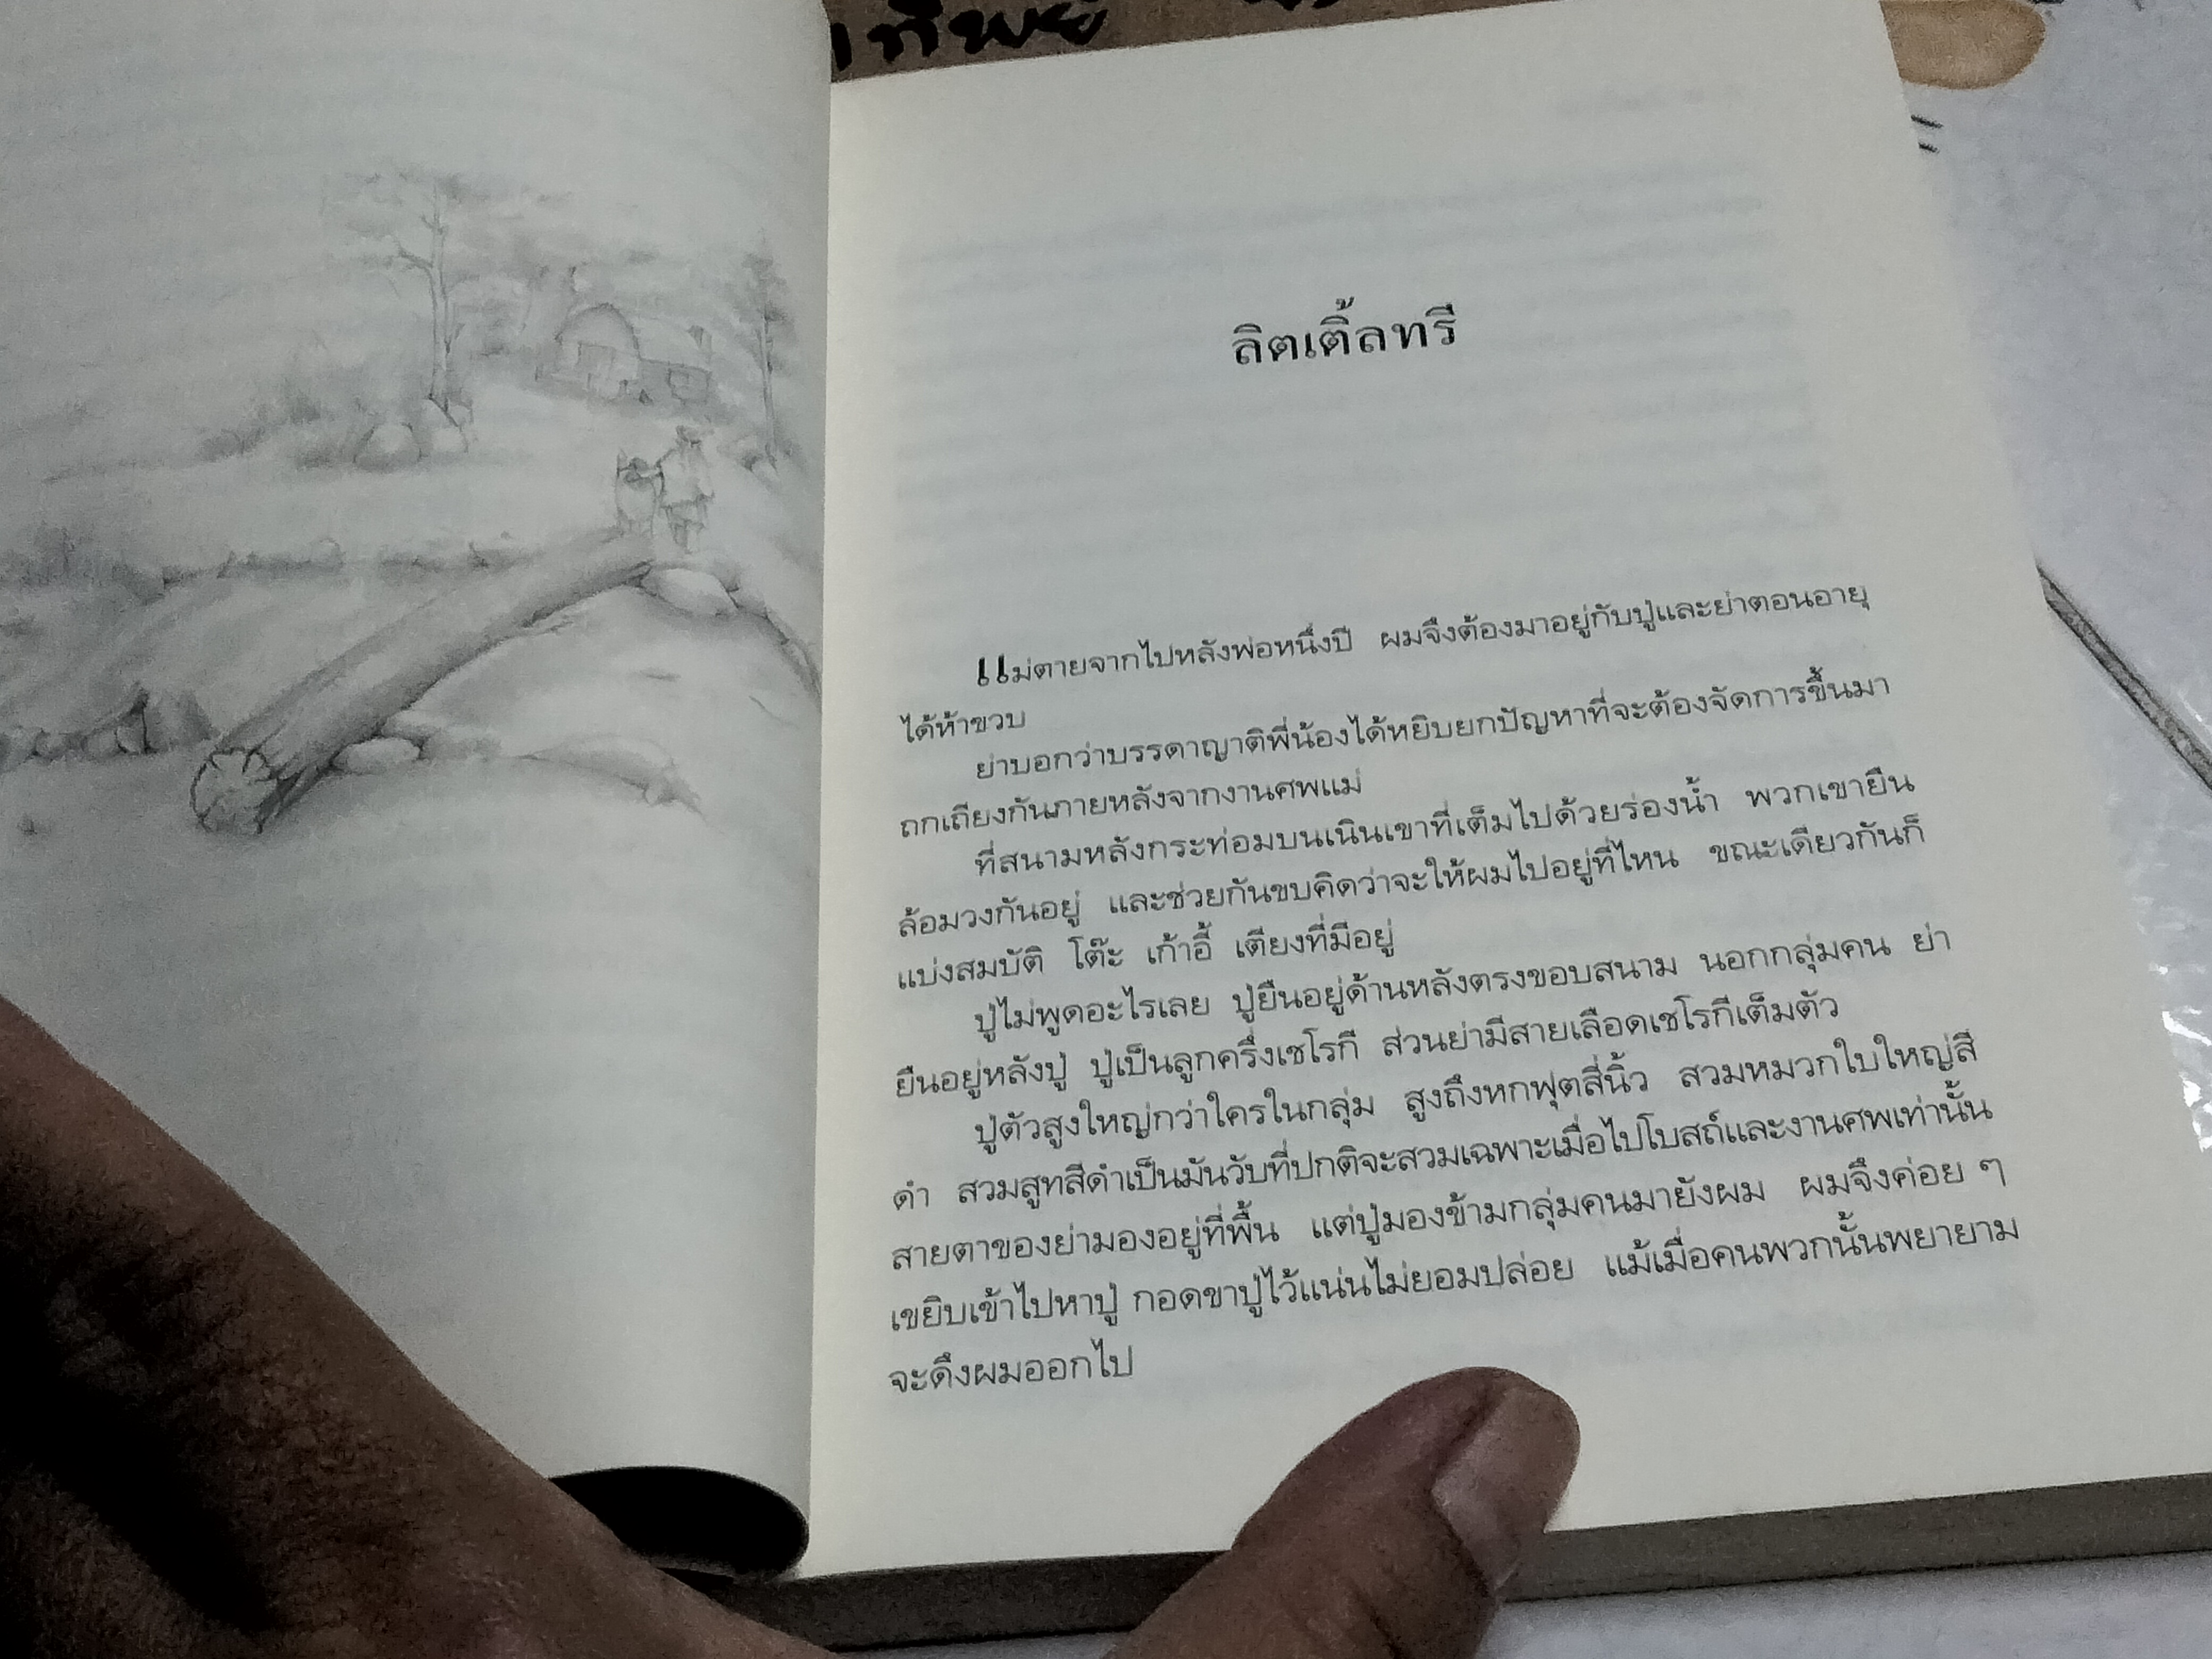 ทิพย์
ลิตเติ้ลทรี
แม่ตายจากไปหลังพ่อหนึ่งปี ผมจึงต้องมาอยู่กับปู่และย่าตอนอายุ
ได้ห้าขวบ
ย่าบอกว่าบรรดาญาติพี่น้องได้หยิบยกปัญหาที่จะต้องจัดการขึ้นมา
ถกเถียงกันภายหลังจากงานศพแม่
ที่สนามหลังกระท่อมบนเนินเขาที่เต็มไปด้วยร่องน้ำ พวกเขายืน
ล้อมวงกันอยู่ และช่วยกันขบคิดว่าจะให้ผมไปอยู่ที่ไหน ขณะเดียวกันก็
แบ่งสมบัติ โต๊ะ เก้าอี้ เตียงที่มีอยู่
ปู่ไม่พูดอะไรเลย ปู่ยืนอยู่ด้านหลังตรงขอบสนาม นอกกลุ่มคน ย่า
ยืนอยู่หลังปู่ ปู่เป็นลูกครึ่งเชโรกี ส่วนย่ามีสายเลือดเชโรกีเต็มตัว
ปู่ตัวสูงใหญ่กว่าใครในกลุ่ม สูงถึงหกฟุตสี่นิ้ว สวมหมวกใบใหญ่สี
ดำ สวมสูทสีดำเป็นมันวับที่ปกติจะสวมเฉพาะเมื่อไปโบสถ์และงานศพเท่านั้น
สายตาของย่ามองอยู่ที่พื้น แต่ปู่มองข้ามกลุ่มคนมายังผม ผมจึงค่อย ๆ
เขยิบเข้าไปหาปู่ กอดขาปู่ไว้แน่นไม่ยอมปล่อย แม้เมื่อคนพวกนั้นพยายาม
จะดึงผมออกไป